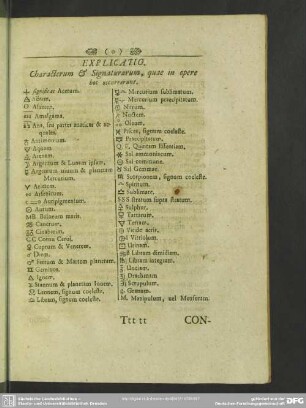 ( o )
EXPLICATIO,
Characterum & Signaturarum, quae in opere
hoc occurrunt.
significat Acetum.
Aërem.
Alumen.
aaa Amalgama.
Ana, seu partes
Antimonium.
Aquam
Arenam.
Argentum & Lunam ipsam,
Argentum vivum & planetam
Mercurium.
Arietem.
Arsenicum.
Auripigmentum.
Aurum.
MB. Balneum maris.
Cancrum,
CC Cornu Cervi.
Cuprum & Venerem.
Diem.
Ferrum & Martem planetam
Geminos.
Ignem.
Stannum & planetam Iovem.
Leonem, signum coeleste.
Libram, signum coeleste.
Mercurium sublimatum.
Mercurium praecipitatum.
Nitrum.
Noctem.
Oleum.
Pisces, signum coeleste.
Praecipitatum.
Q. E. Quintam Essentiam,
Sal ammoniacum.
Sal commune.
Sal Gemmae.
Scorpionem, signum coeleste.
Spiritum.
Sublimare.
SSS Stratum supra stratum.
Sulphur.
Tartarum.
Terram.
Viride aeris.
Vitriolum.
Urinam.
Libram dimidiam.
Libram integram.
Unciam.
Drachmam
Scrupulum.
Granum.
M. Manipulum, vel Mensuram.
Ttt tt CON-